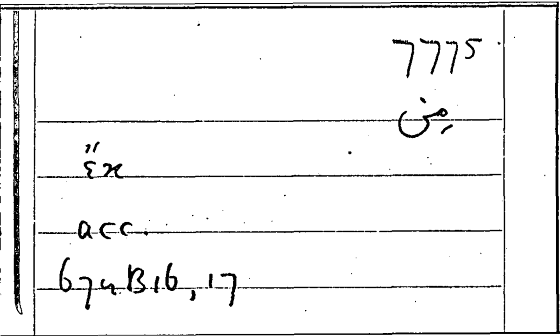 7775
من
acc.
674B16, 17